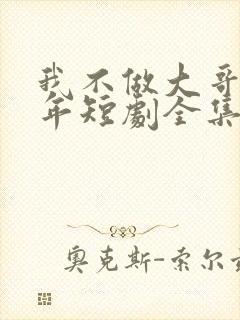 我不做大哥
年短剧全集
奥克斯-索尔